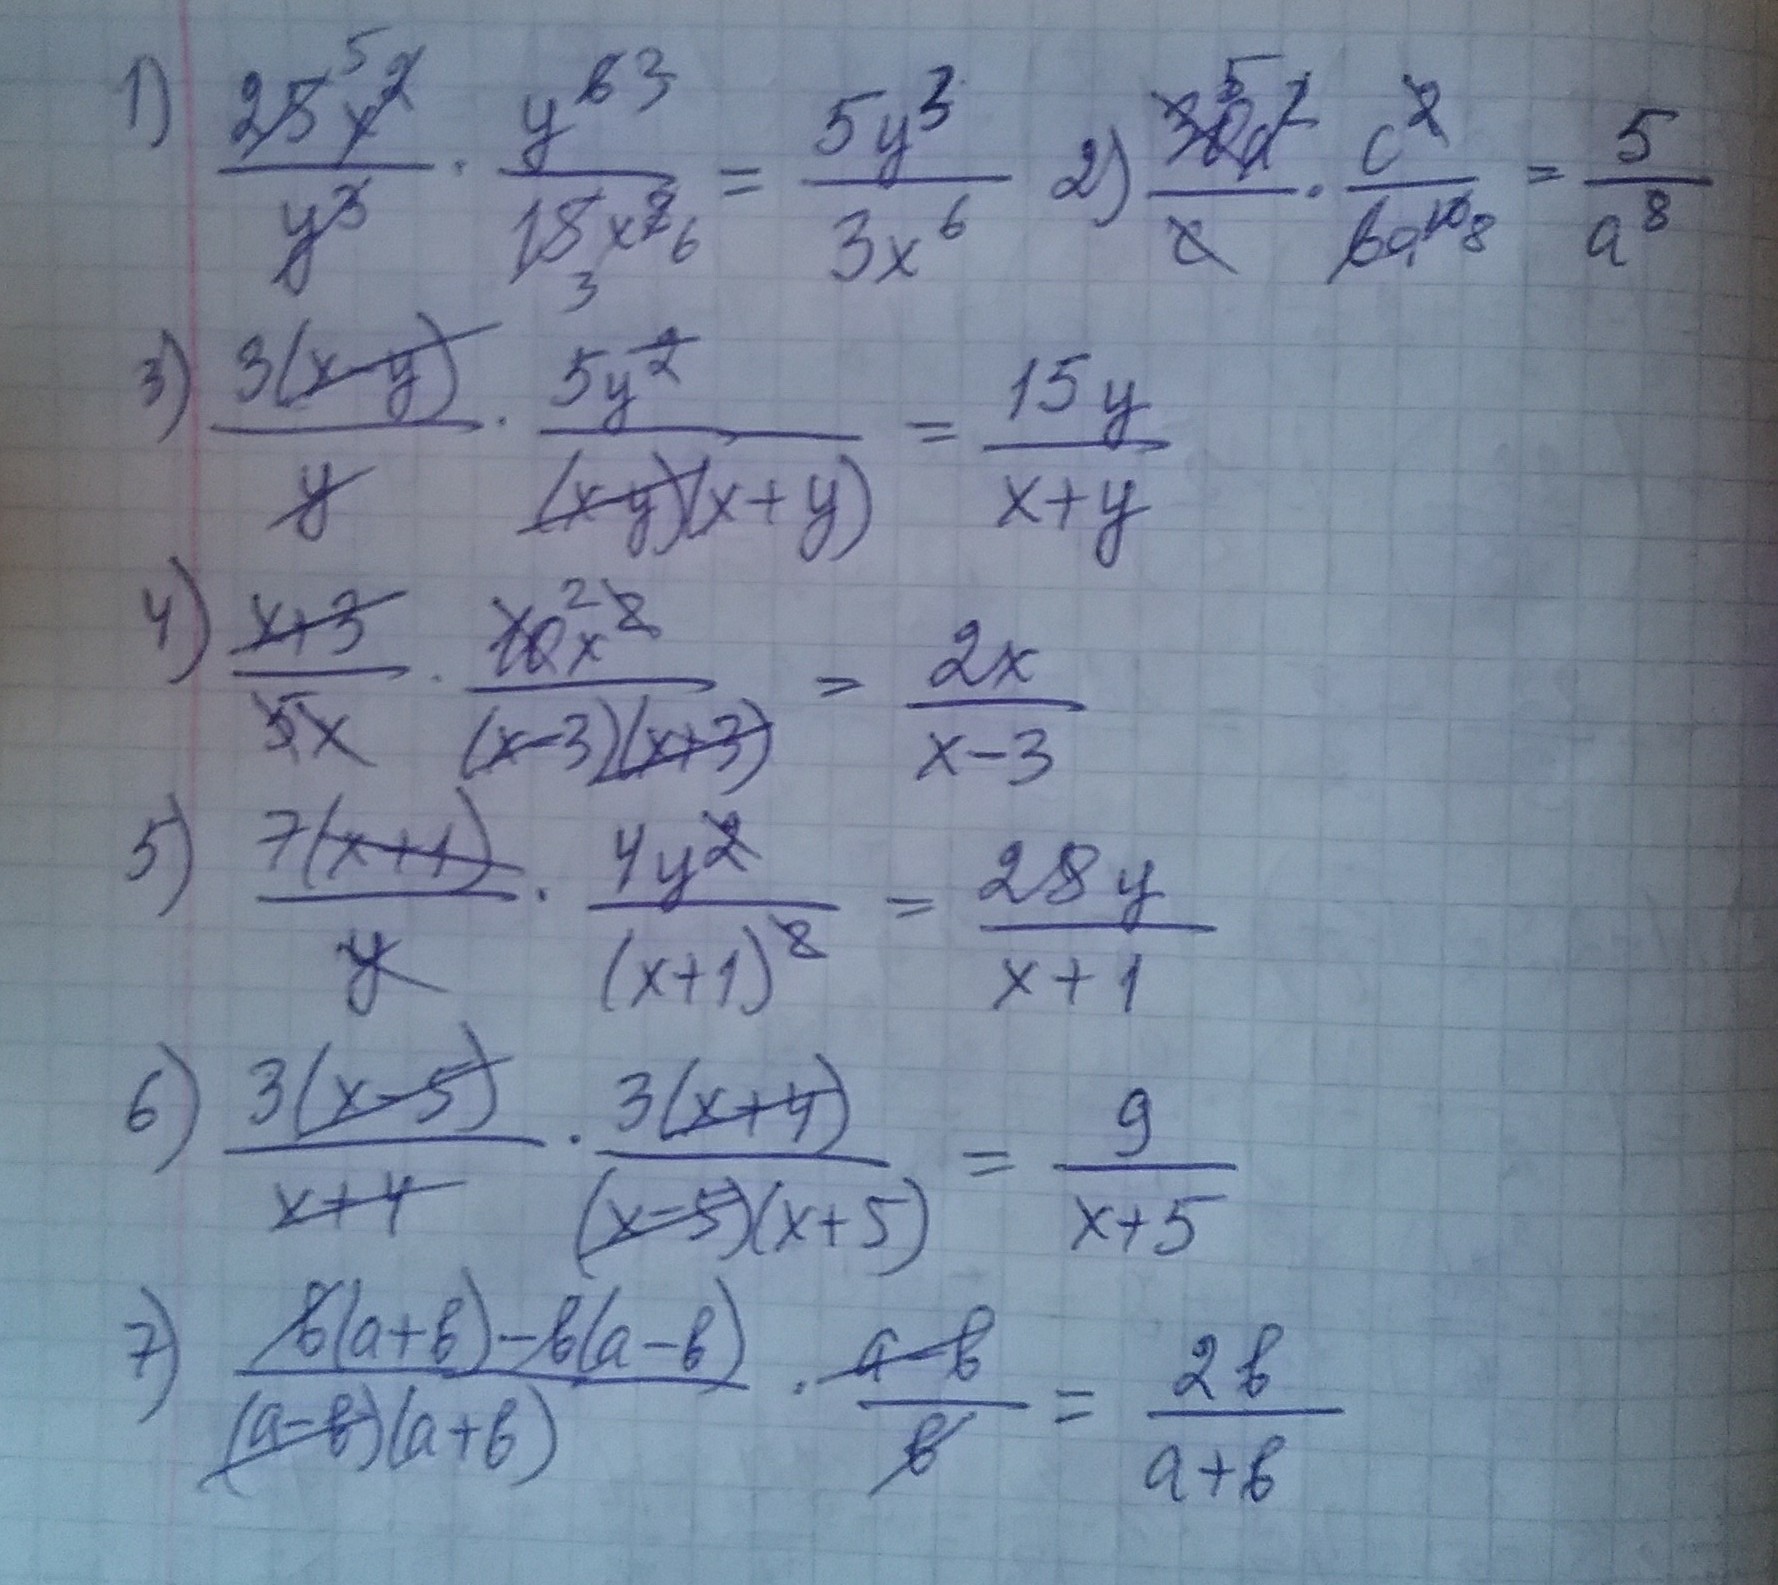 1) 25⁵x² / y³ · y⁶ ³ / 15₃x⁷ ₆ = 5y³ / 3x⁶ 2) 30⁵a² / c · c² / 6a¹⁰ ⁸ = 5 / a⁸
3) 3(x-y) / y · 5y² / (x-y)(x+y) = 15y / x+y
4) x+3 / 5x · 10²x² / (x-3)(x+3) = 2x / x-3
5) 7(x+1) / y · 4y² / (x+1)² = 28y / x+1
6) 3(x-5) / x+4 · 3(x+4) / (x-5)(x+5) = 9 / x+5
7) b(a+b)-b(a-b) / (a-b)(a+b) · a-b / b = 2b / a+b